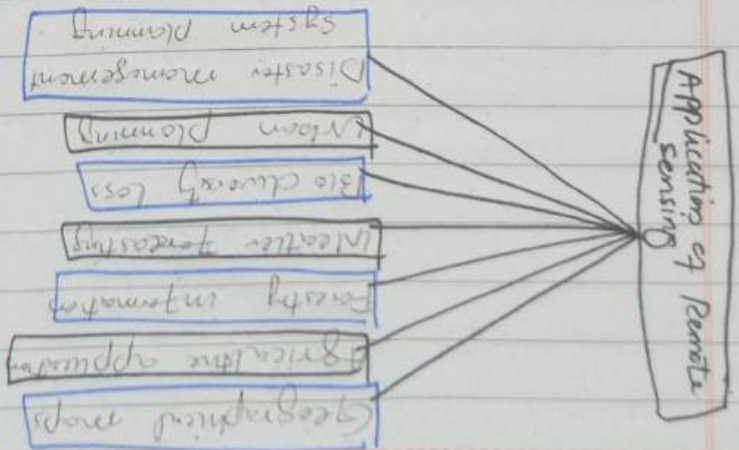 Application of Remote
sensing
Geographical maps
Agriculture application
Forestry information
Weather forecasting
Bio diversity Loss
Urban planning
Disaster management
System planning